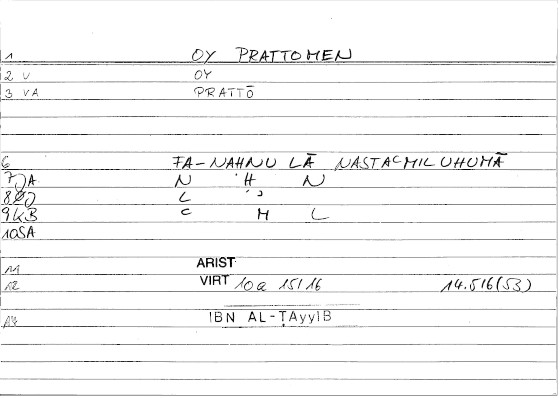 1 OY PRATTOMEN
2 V OY
3 VA PRATTŌ
6 FA-NAḤNU LĀ NASTAʿMILUHUMĀ
7 JA N Ḥ N
L ʾ
9 KB ʿ M L
10 SA
11 ARIST
12 VIRT 10a 15/16 14.516(53)
IBN AL-ṬAyyIB